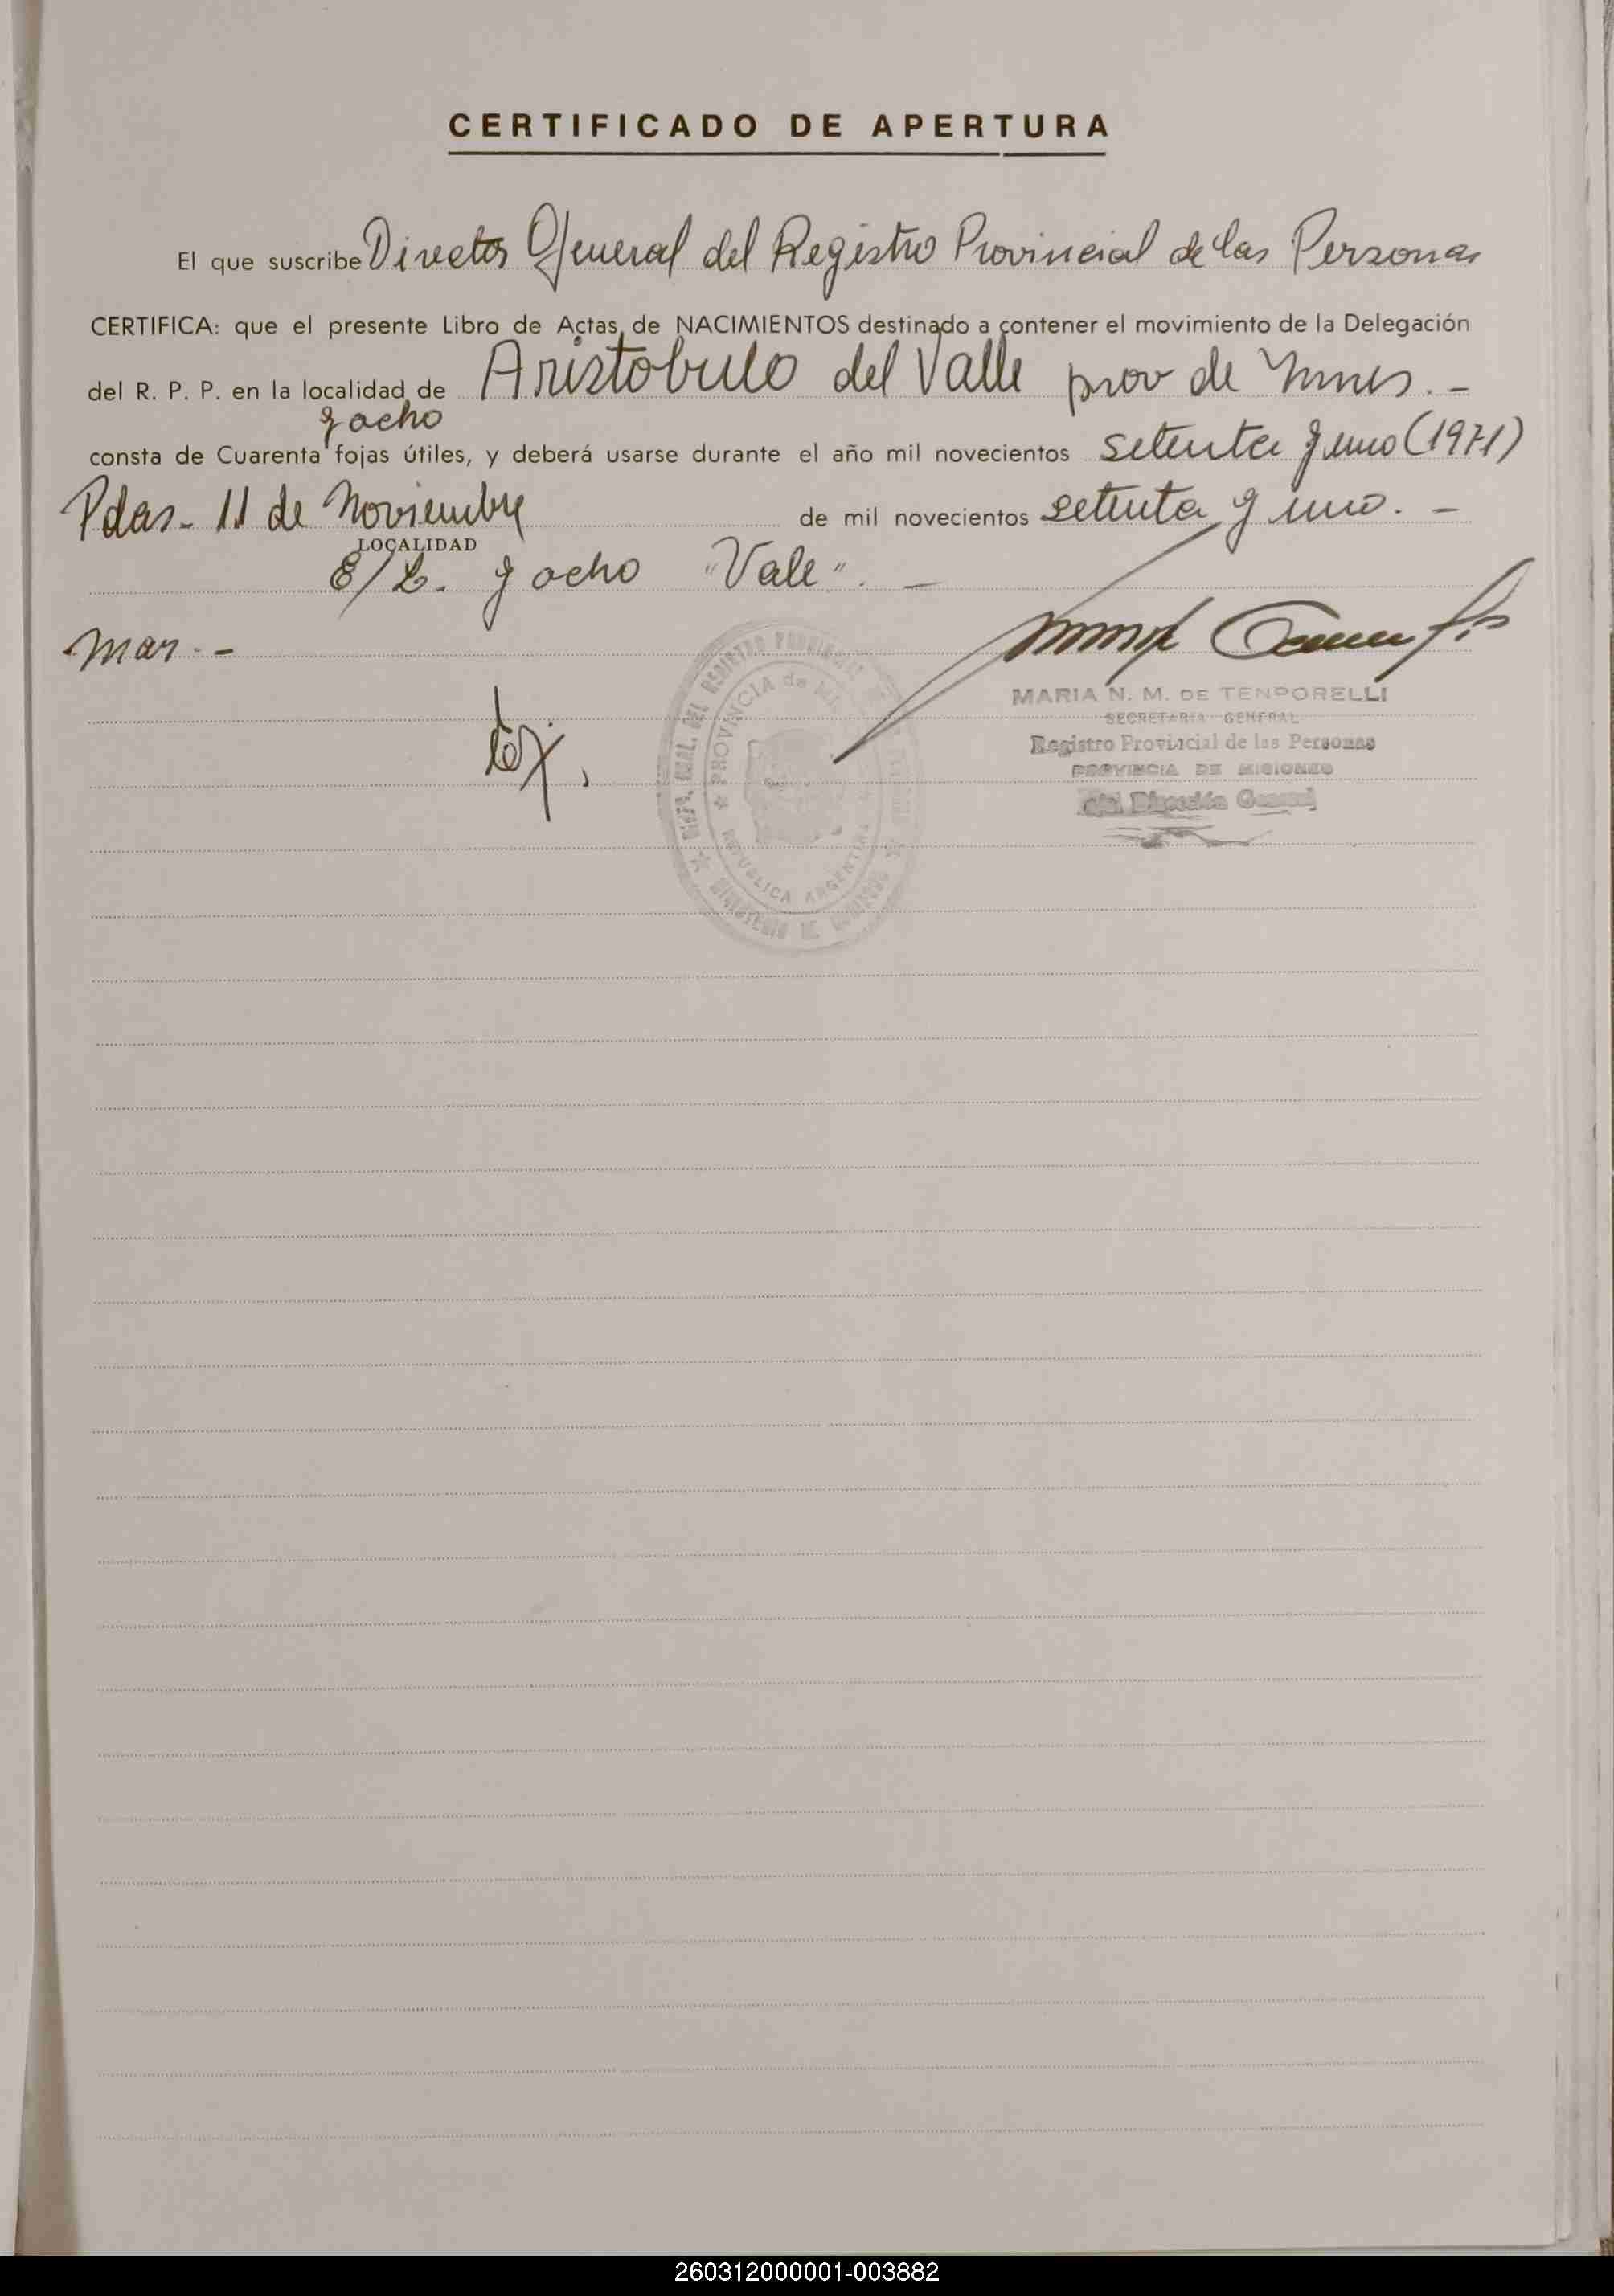 CERTIFICADO DE APERTURA
El que suscribe Director General del Registro Provincial de las Personas
CERTIFICA: que el presente Libro de Actas de NACIMIENTOS destinado a contener el movimiento de la Delegación
del R. P. P. en la localidad de Aristobulo del Valle prov de Mnes. -
y ocho
consta de Cuarenta fojas útiles, y deberá usarse durante el año mil novecientos setenta y uno (1971)
Pdas - 11 de Noviembre de mil novecientos setenta y uno. -
LOCALIDAD
E/L. y ocho "Vale". -
mar. -
MARIA N. M. DE TENPORELLI
SECRETARIA GENERAL
Registro Provincial de las Personas
PROVINCIA DE MISIONES
Dirección General
DEL REGISTRO PROVINCIAL
PROVINCIA de
REPUBLICA ARGENTINA
260312000001-003882